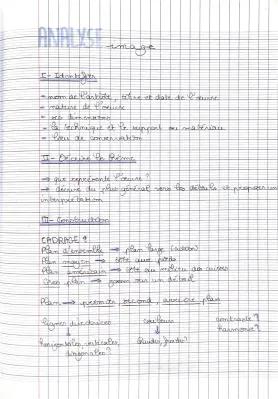 ANALYSE
image
I - Identifier
- nom de l'artiste, titre et date de l'œuvre
- nature de l'œuvre
- ses dimensions
- la technique et le support ou matériaux
- lieu de conservation
II - Décrire le thème
→ que représente l'œuvre ?
→ décrire du plus général vers les détails et proposer une
interprétation
III - Construction
CADRAGE ?
Plan d'ensemble → plan large (action)
Plan moyen → tête aux pieds
Plan américain → tête au milieu des cuisses
Gros plan → zoom sur un détail
Plan → premier, second, arrière plan
lignes directrices couleurs contraste ?
horizontales, verticales, chaudes, froides ? harmonie ?
diagonales ?